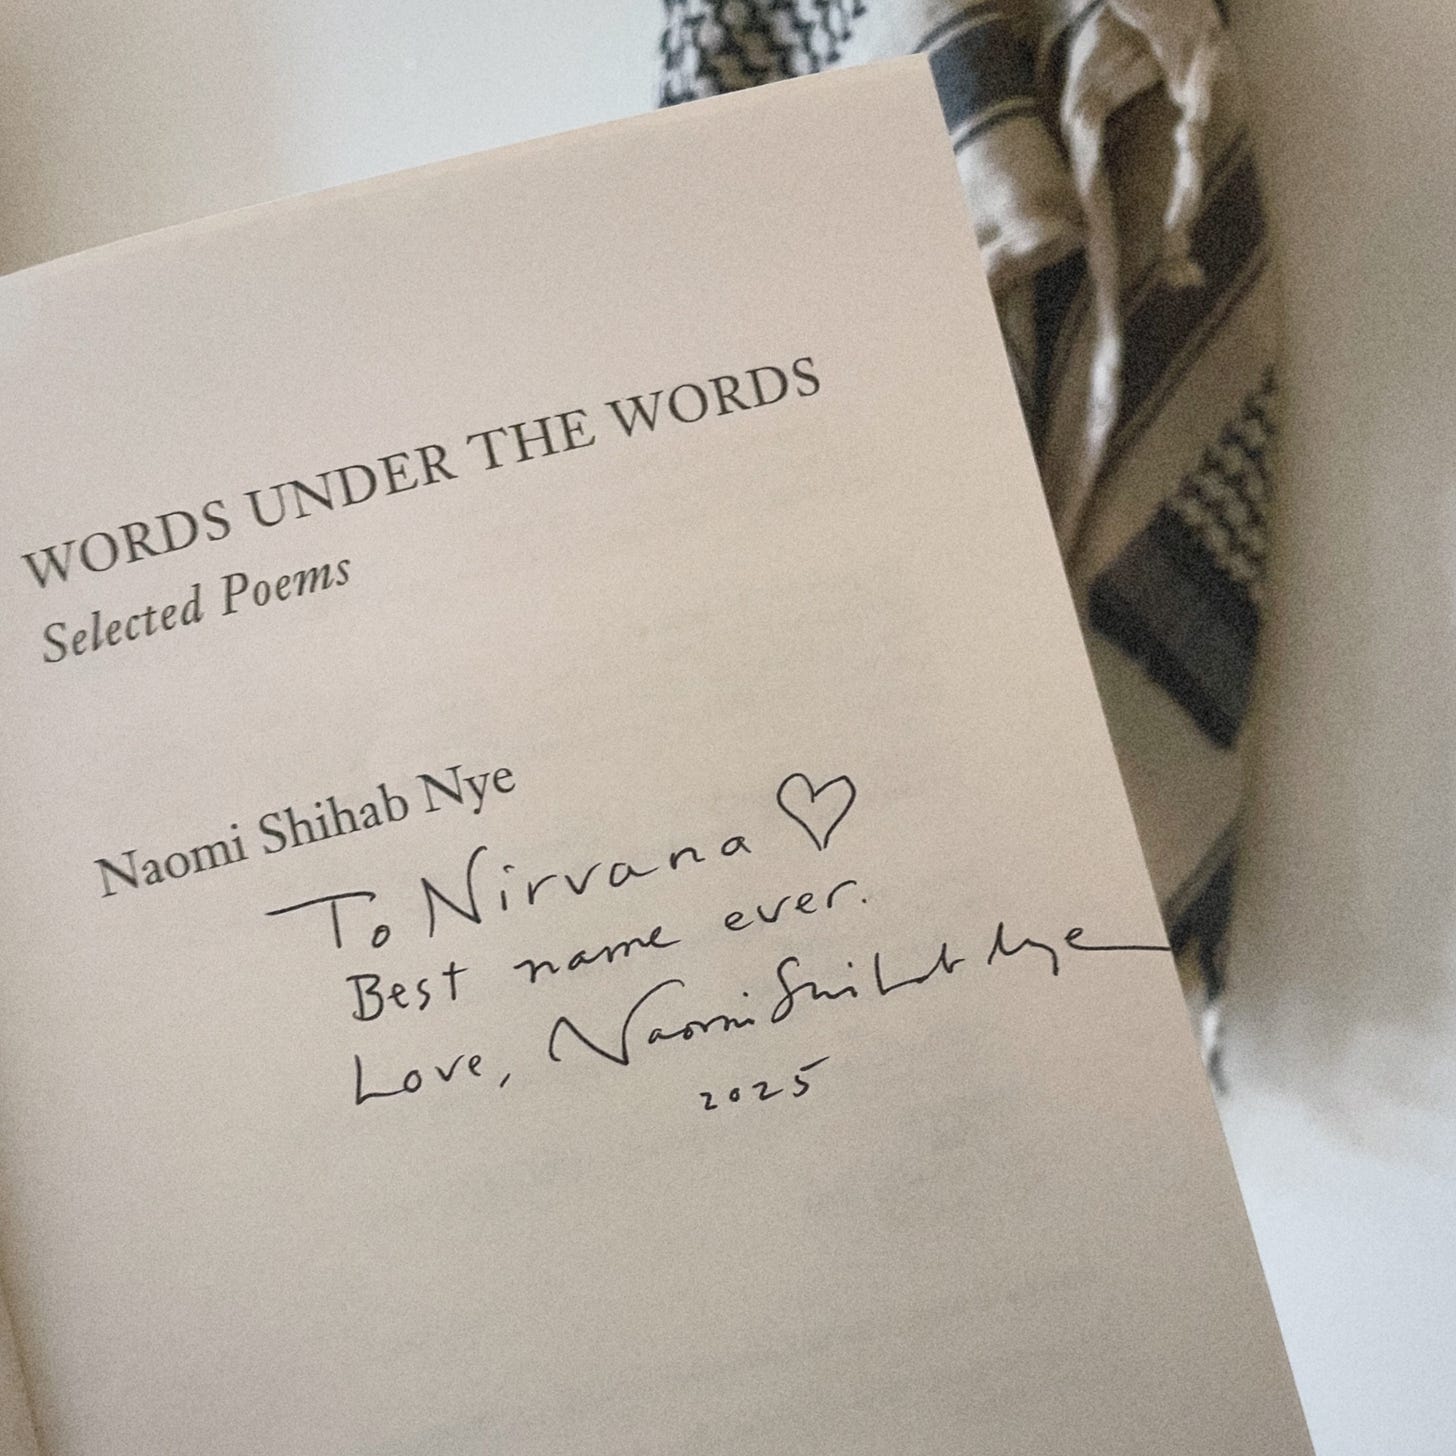 WORDS UNDER THE WORDS
Selected Poems
Naomi Shihab Nye
To Nirvana ♡
Best name ever.
Love, Naomi Shihab Nye
2025